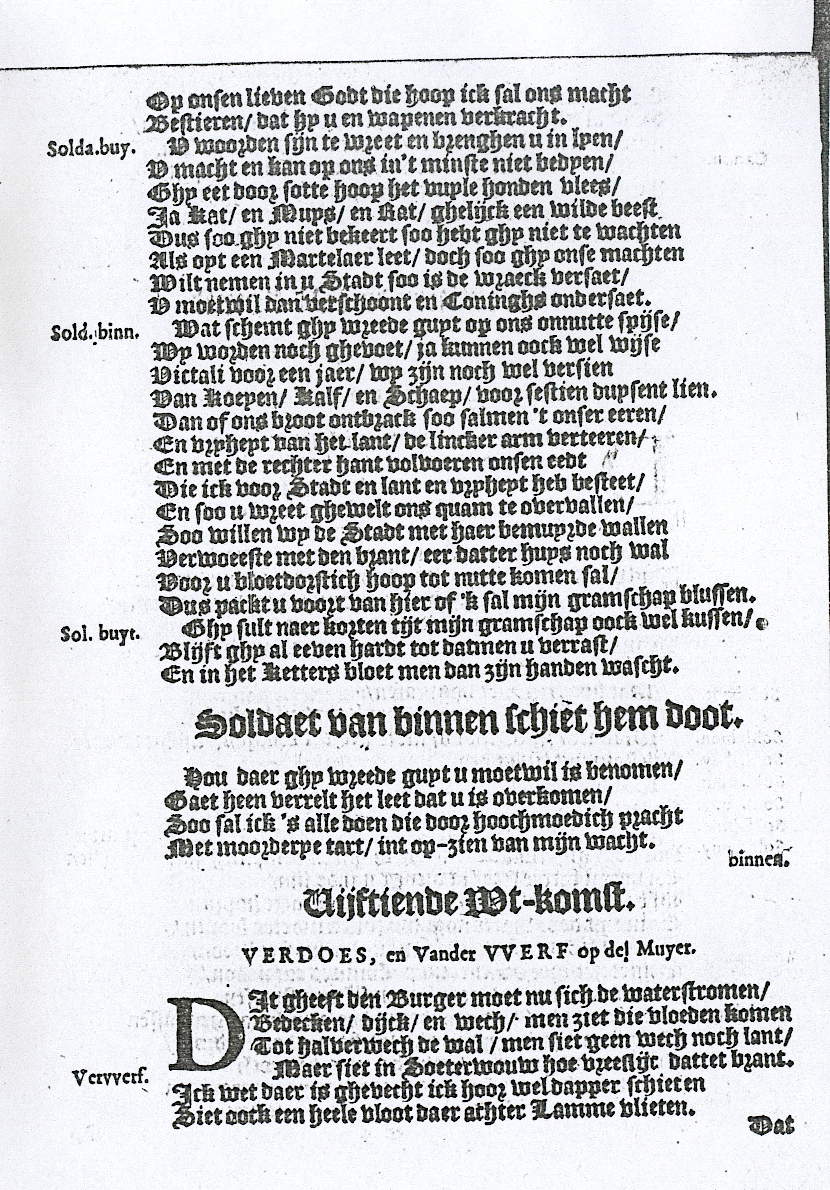 Op onsen lieven Godt die hoop ick sal ons macht
Bestieren/ dat hy u en wapenen verkracht.
Solda.buy. V woorden sijn te wreet en brenghen u in lyen/
V macht en kan op ons in't minste niet bedyen/
Ghy eet door sotte hoop het vuyle honden vlees/
Ja Kat/ en Muys/ en Rat/ ghelijck een wilde beest
Dus soo ghy niet bekeert soo hebt ghy niet te wachten
Als oyt een Martelaer leet/ doch soo ghy onse machten
Wilt nemen in u Stadt soo is de wraeck versaet/
V moetwil dan verschoont en Coninghs ondersaet.
Sold. binn. Wat schemt ghy wreede guyt op ons onnutte spijse/
Wy worden noch ghevoet/ ja kunnen oock wel wijse
Victali voor een jaer/ wy zijn noch wel versien
Van Koeyen/ Kalf/ en Schaep/ voor sestien duysent lien.
Dan of ons broot ontbrack soo salmen 't onser eeren/
En vryheyt van het lant/ de lincker arm verteeren/
En met de rechter hant volvoeren onsen eedt
Die ick voor Stadt en lant en vryheyt heb besteet/
En soo u wreet ghewelt ons quam te overvallen/
Soo willen wy de Stadt met haer bemuyrde wallen
Verwoeeste met den brant/ eer datter huys noch wal
Voor u bloetdorstich hoop tot nutte komen sal/
Dus packt u voort van hier of 'k sal mijn gramschap blussen.
Sol. buyt. Ghy sult naer korten tijt mijn gramschap oock wel kussen/
Blijft ghy al eeven hardt tot datmen u verrast/
En in het Ketters bloet men dan zijn handen wascht.
Soldaet van binnen schiet hem doot.
Hou daer ghy wreede guyt u moetwil is benomen/
Gaet heen verrelt het leet dat u is overkomen/
Soo sal ick 's alle doen die door hoochmoedich pracht
Met moorderye tart/ int op-zien van mijn wacht.
binnen.
Vijftiende Wt-komst.
VERDOES, en Vander VVERF op de Muyer.
DIt gheeft den Burger moet nu sich de waterstromen/
Bedecken/ dijck/ en wech/ men ziet die vloeden komen
Tot halverwech de wal / men siet geen wech noch lant/
Maer siet in Soeterwouw hoe vreeslijc dattet brant.
Vervverf. Ick wet daer is ghevecht ick hoor wel dapper schieten
Siet oock een heele vloot daer achter Lamme vlieten.
Dat